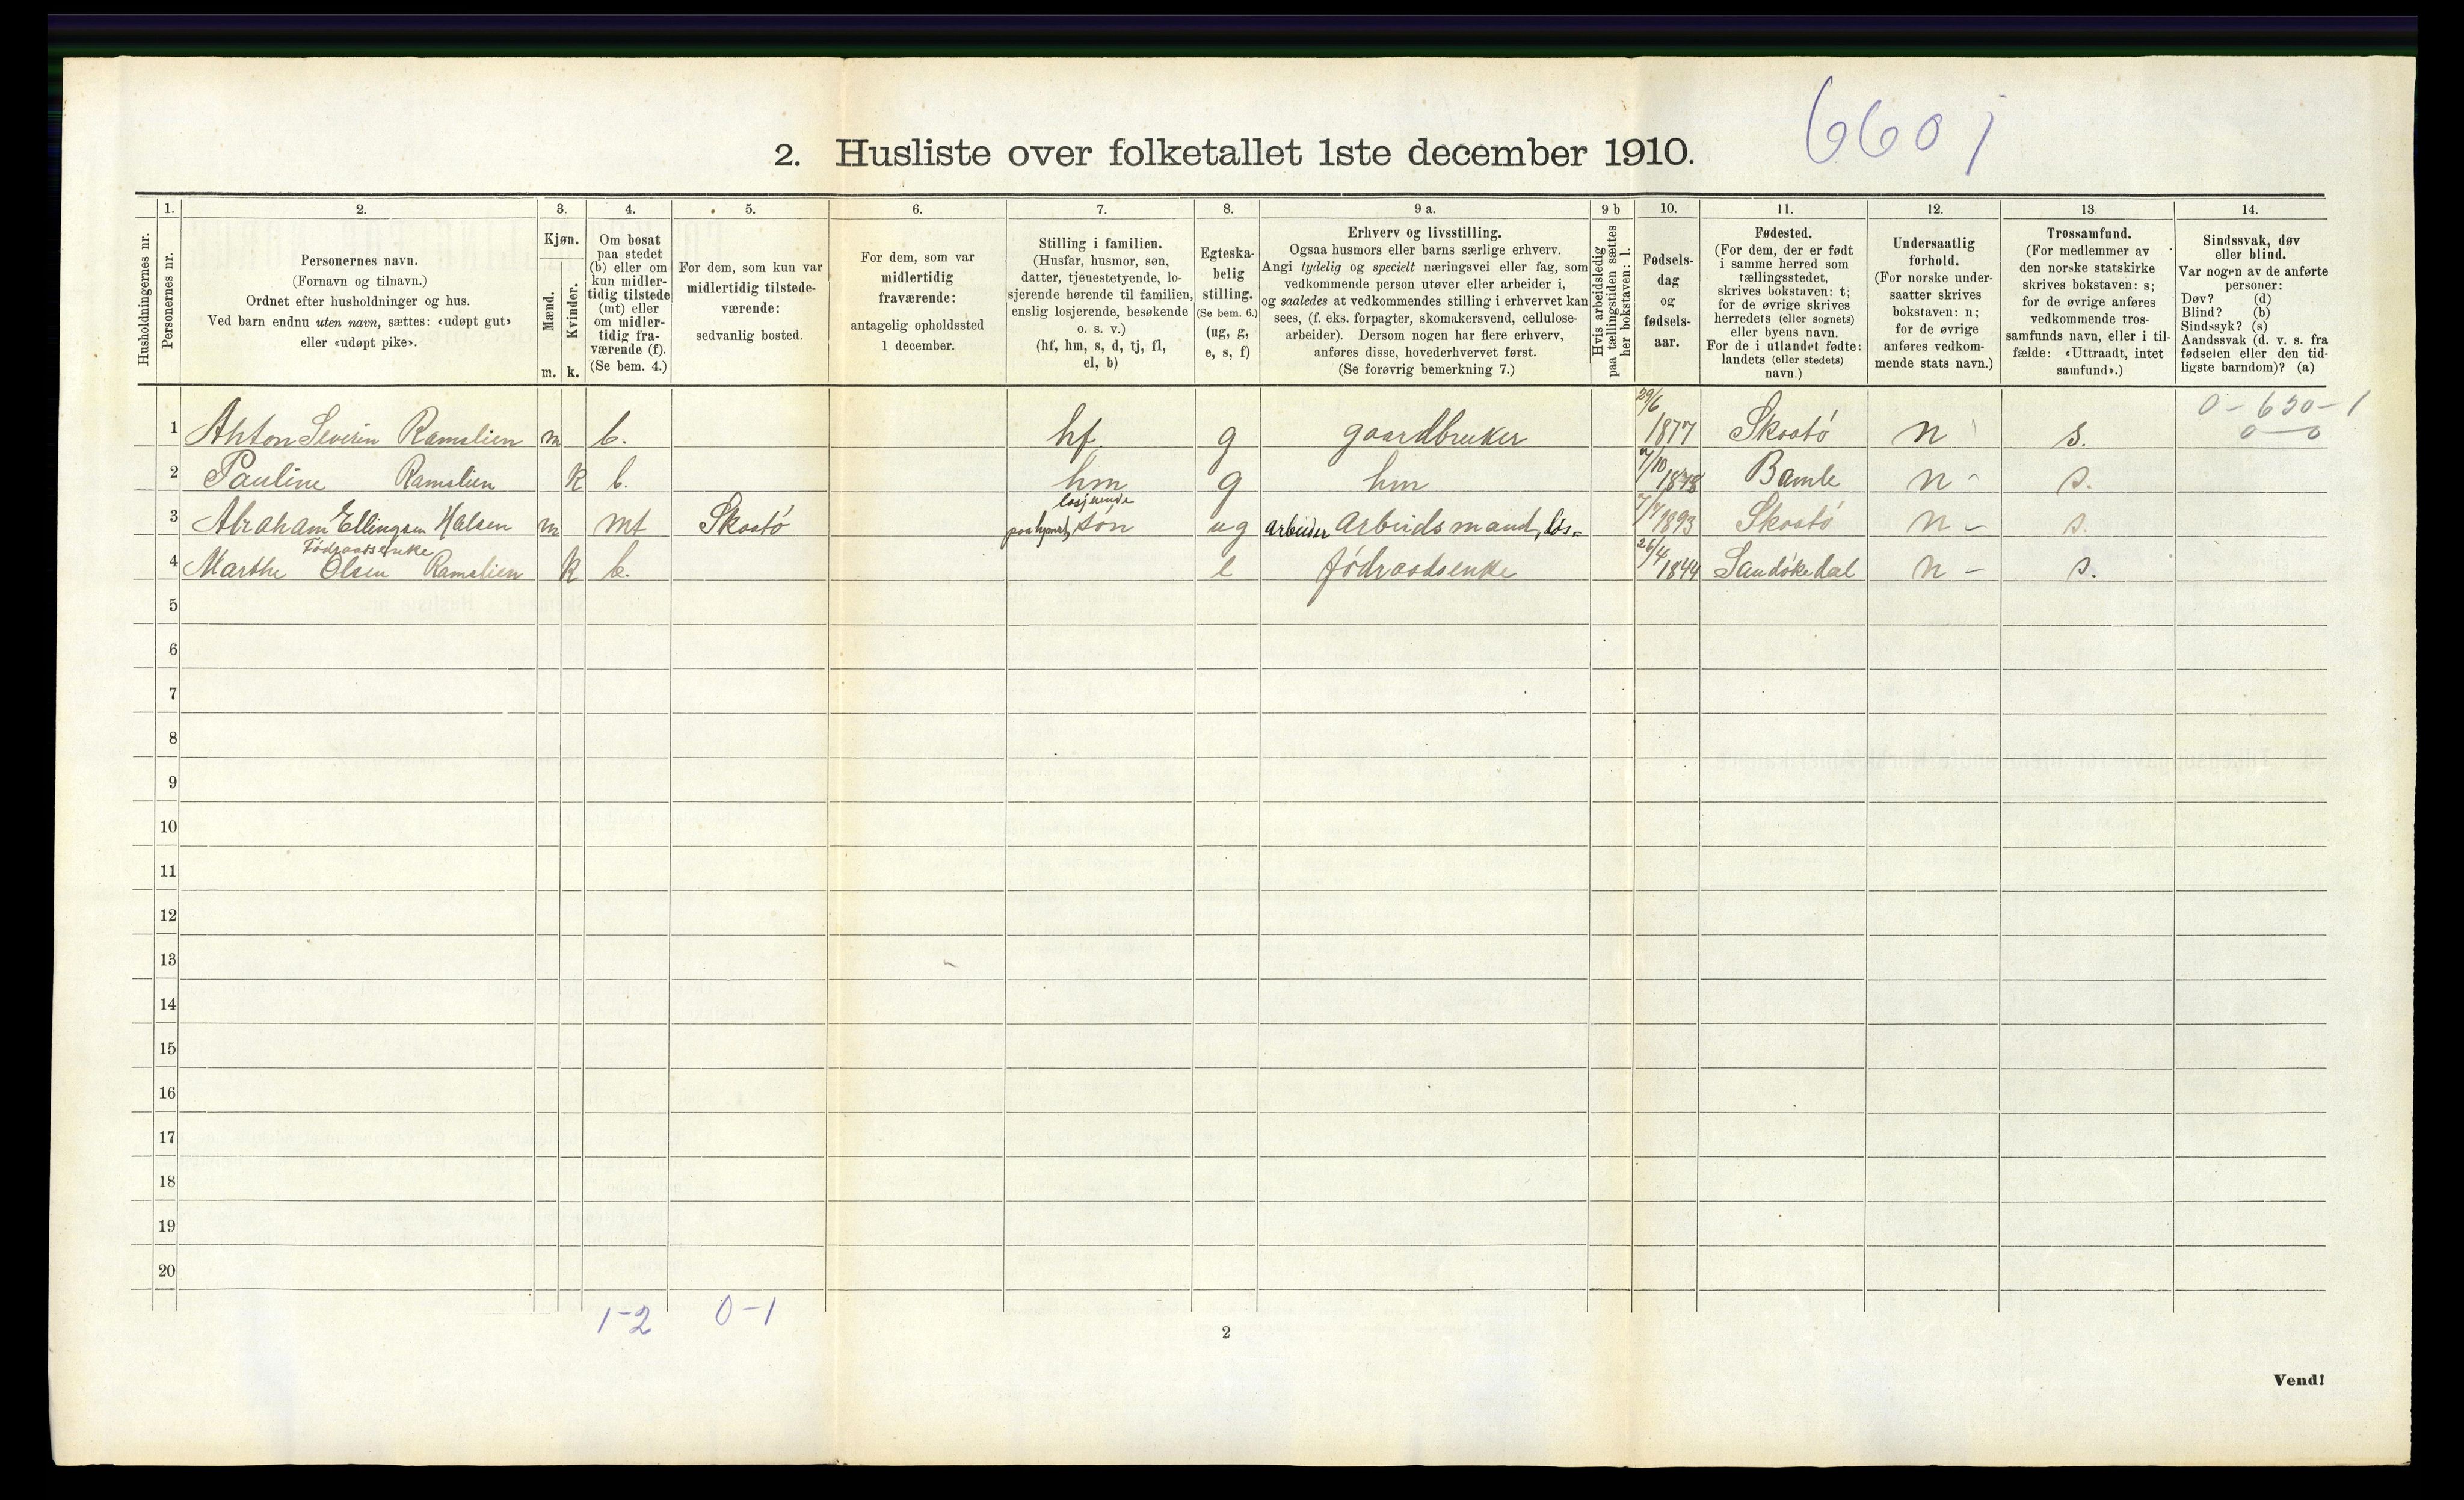 6601
2. Husliste over folketallet 1ste december 1910.
Husholdningernes nr.
1.
Personernes nr.
2.
Personernes navn.
(Fornavn og tilnavn.)
Ordnet efter husholdninger og hus.
Ved barn endnu uten navn, sættes: «udøpt gut»
eller «udøpt pike».
3.
Kjøn.
Mænd.
Kvinder.
m. k.
4.
Om bosat
paa stedet
(b) eller om
kun midler-
tidig tilstede
(mt) eller
om midler-
tidig fra-
værende (f).
(Se bem. 4.)
5.
For dem, som kun var
midlertidig tilstede-
værende:
sedvanlig bosted.
6.
For dem, som var
midlertidig
fraværende:
antagelig opholdssted
1 december.
7.
Stilling i familien.
(Husfar, husmor, søn,
datter, tjenestetyende, lo-
sjerende hørende til familien,
enslig losjerende, besøkende
o. s. v.)
(hf, hm, s, d, tj, fl,
el, b)
8.
Egteska-
belig
stilling.
(Se bem. 6.)
(ug, g,
e, s, f)
9 a.
Erhverv og livsstilling.
Ogsaa husmors eller barns særlige erhverv.
Angi tydelig og specielt næringsvei eller fag, som
vedkommende person utøver eller arbeider i,
og saaledes at vedkommendes stilling i erhvervet kan
sees, (f. eks. forpagter, skomakersvend, cellulose-
arbeider). Dersom nogen har flere erhverv,
anføres disse, hovederhvervet først.
(Se forøvrig bemerkning 7.)
9 b
Hvis arbeidsledig
paa tællingstiden sættes
her bokstaven: l.
10.
Fødsels-
dag
og
fødsels-
aar.
11.
Fødested.
(For dem, der er født
i samme herred som
tællingsstedet,
skrives bokstaven: t;
for de øvrige skrives
herredets (eller sognets)
eller byens navn.
For de i utlandet fødte:
landets (eller stedets)
navn.)
12.
Undersaatlig
forhold.
(For norske under-
saatter skrives
bokstaven: n;
for de øvrige
anføres vedkom-
mende stats navn.)
13
Trossamfund.
(For medlemmer av
den norske statskirke
skrives bokstaven: s;
for de øvrige anføres
vedkommende tros-
samfunds navn, eller i til-
fælde: «Uttraadt, intet
samfund».)
14.
Sindssvak, døv
eller blind.
Var nogen av de anførte
personer:
Døv? (d)
Blind? (b)
Sindssyk? (s)
Aandssvak (d. v. s. fra
fødselen eller den tid-
ligste barndom)? (a)
0-650-1
0-0
1 Anton Severin Ramslien m b. hf. g gaardbruker 29/6 1877 Skaatö n s.
2 Pauline Ramslien k b. hm g hm 7/10 1878 Bamle n - s.
losjerende
3 Abraham Ellingsen Halsen m mt Skaatö sön ug arbeider Arbeidsmand, løs= 7/7 1893 Skaatö n - s.
Födraadsenke
4 Marthe Olsen Ramslien k b. e födraadsenke 26/4 1844 Sandökedal n - s.
5
6
7
8
9
10
11
12
13
14
15
16
17
18
19
20
1-2 0-1
2
Vend!